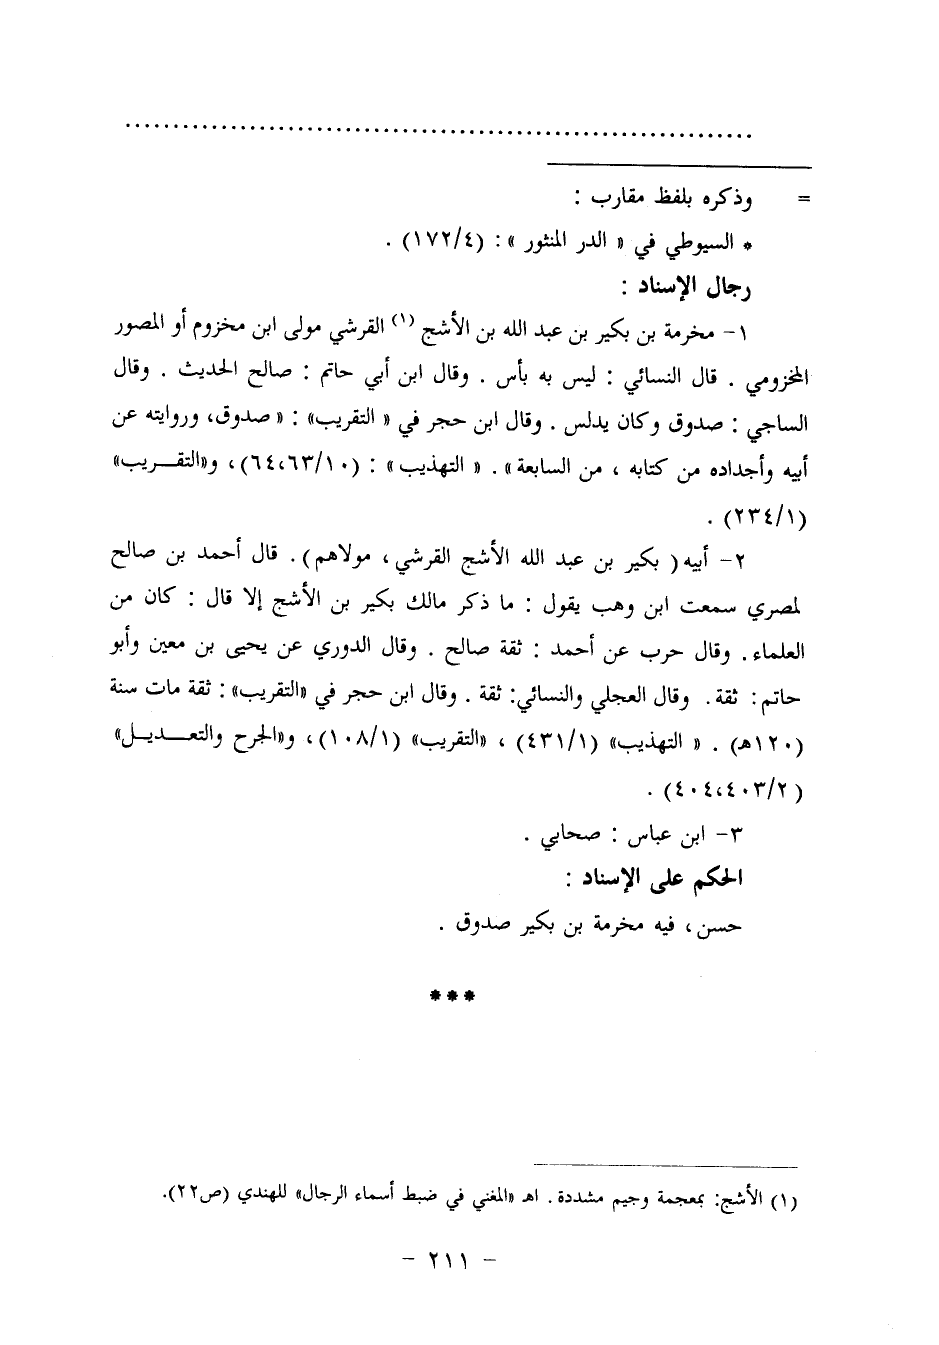 = وذكره بلفظ مقارب :
* السيوطي في « الدر المنثور » : (١٧٢/٤) .
رجال الإسناد :
١- مخرمة بن بكير بن عبد الله بن الأشج (١) القرشي مولى ابن مخزوم أو المصور
المخزومي . قال النسائي : ليس به بأس . وقال ابن أبي حاتم : صالح الحديث . وقال
الساجي : صدوق وكان يدلس . وقال ابن حجر في « التقريب» : « صدوق، وروايته عن
أبيه وأجداده من كتابه ، من السابعة» . « التهذيب» : (٦٤،٦٣/١٠)، و«التقـــريب»
(٢٣٤/١) .
٢- أبيه ( بكير بن عبد الله الأشج القرشي ، مولاهم) . قال أحمد بن صالح
لمصري سمعت ابن وهب يقول : ما ذكر مالك بكير بن الأشج إلا قال : كان من
العلماء . وقال حرب عن أحمد : ثقة صالح . وقال الدوري عن يحيى بن معين وأبو
حاتم : ثقة . وقال العجلي والنسائي: ثقة . وقال ابن حجر في «التقريب» : ثقة مات سنة
(١٢٠هـ) . « التهذيب» (٤٣١/١) ، «التقريب» (١٠٨/١)، و«الجرح والتعـــديـــل»
(٤٠٤،٤٠٣/٢) .
٣- ابن عباس : صحابي .
الحكم على الإسناد :
حسن ، فيه مخرمة بن بكير صدوق .
***
(١) الأشج: بمعجمة وجيم مشددة . اهـ «المغني في ضبط أسماء الرجال» للهندي (ص٢٢).
- ٢١١ -